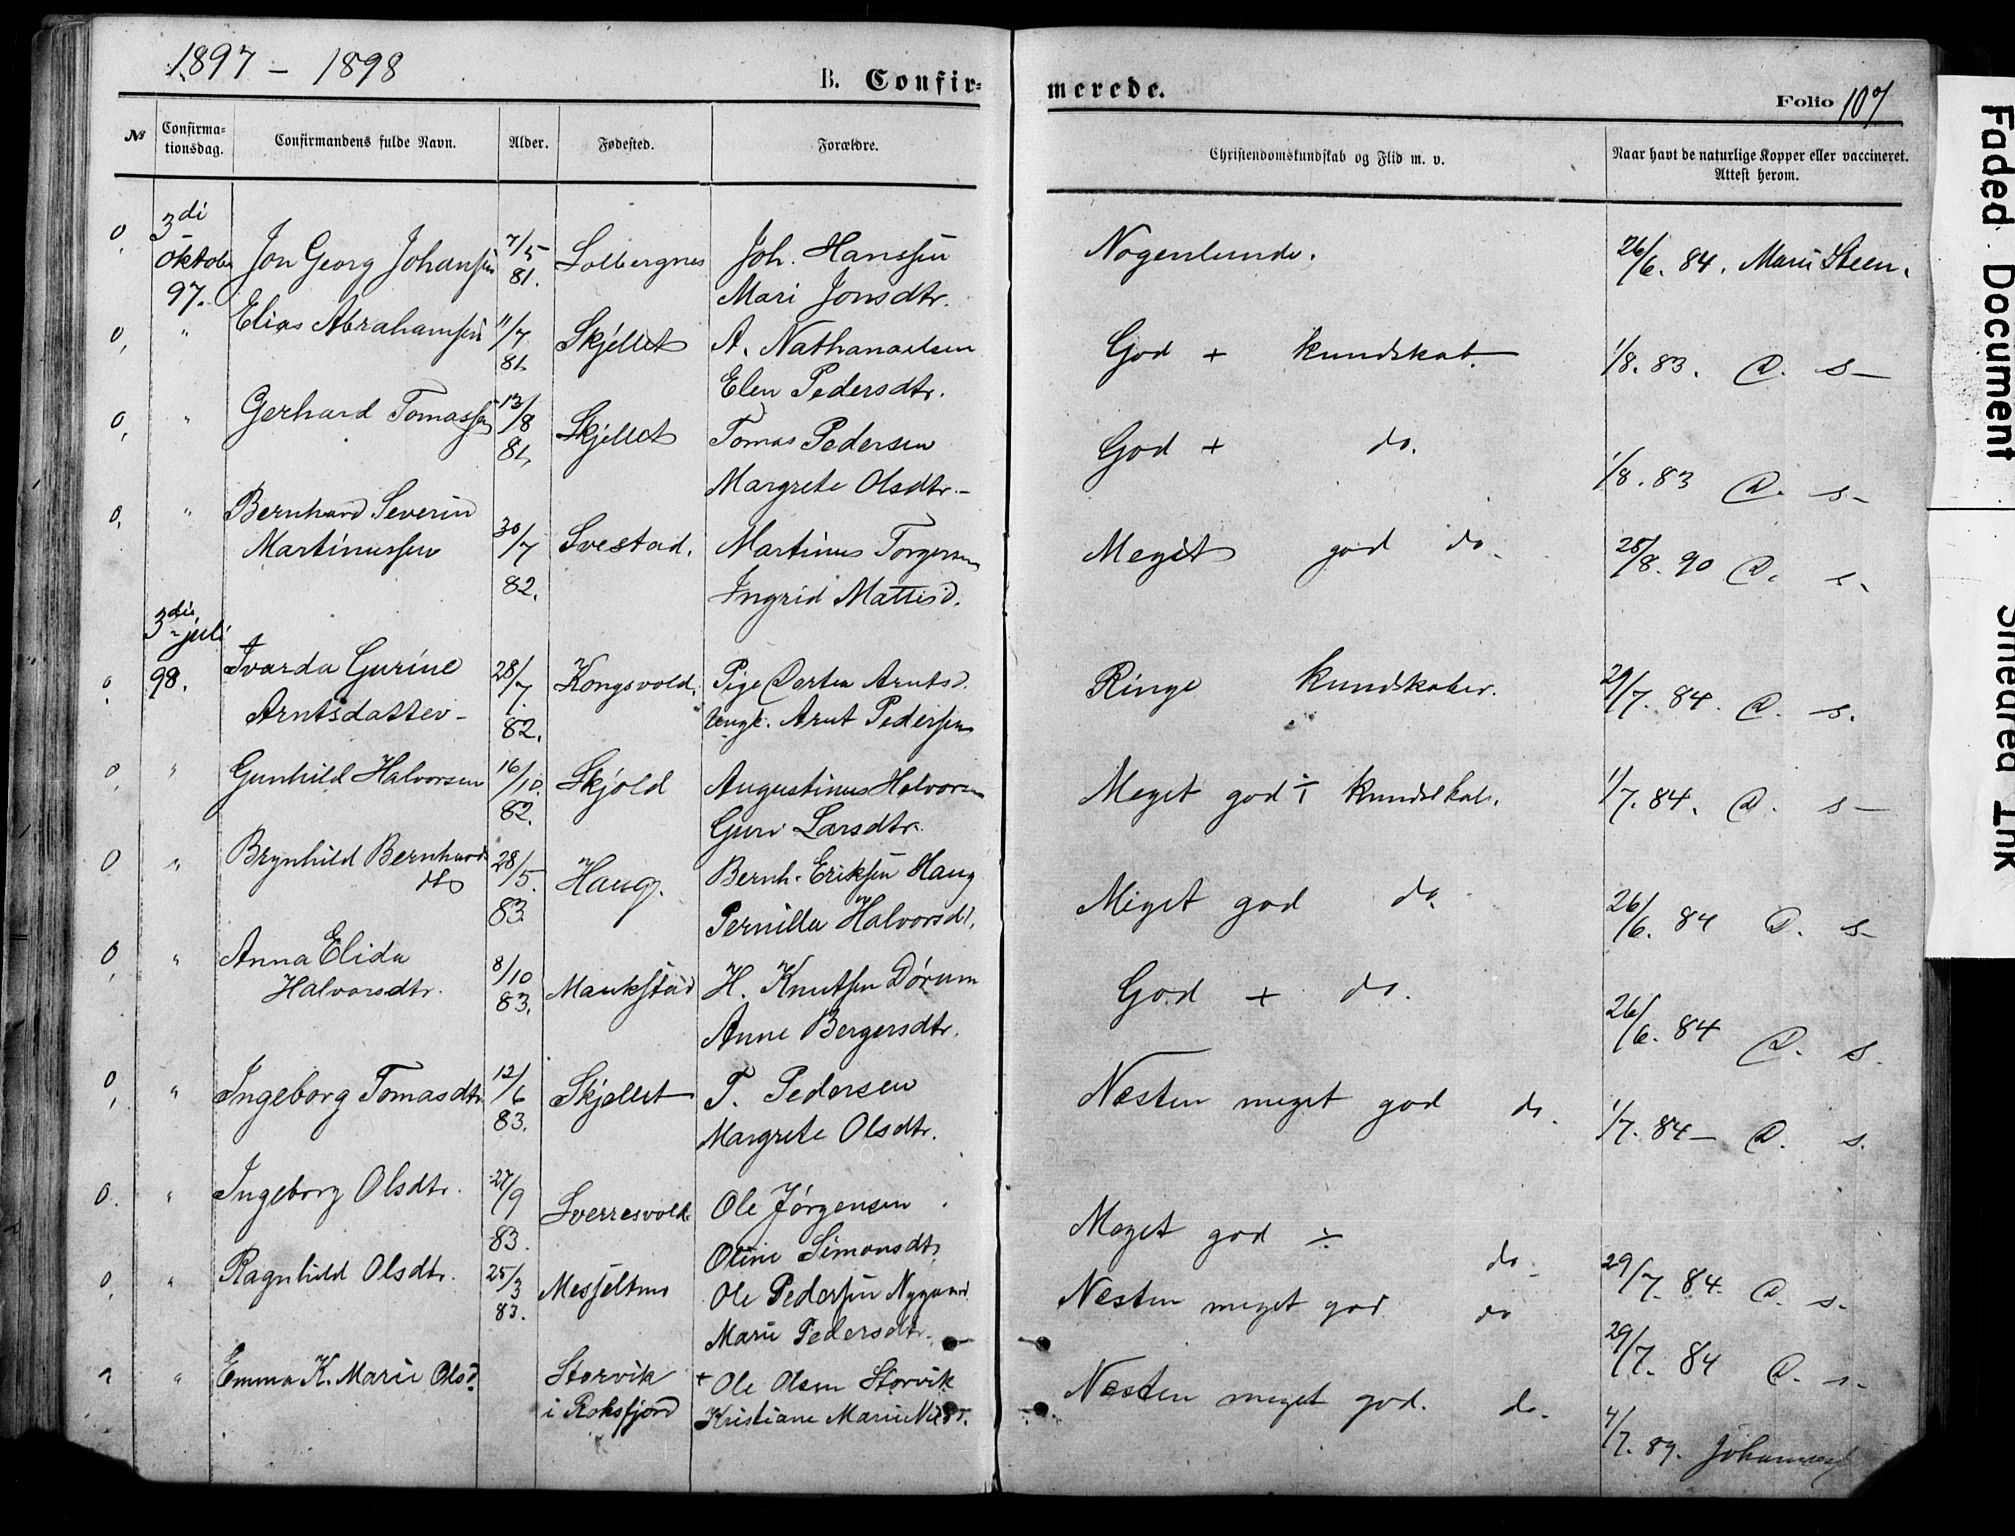 1897 – 1898
B. Confir=
merede.
Folio 107
№
Confirma=
tionsdag.
Confirmandens fulde Navn.
Alder.
Fødested.
Forældre.
Christendomskundskab og Flid m. v.
Naar havt de naturlige Kopper eller vaccineret.
Attest herom.
3di
oktober
97.
0, Jon Georg Johanssen 7/5 81. Solbergnes Joh. Hanssen
Mari Jonsdtr.
Nogenlunde.
26/6. 84. Marie Steen.
0, " Elias Abrahamsen 11/7 81, Skjellet A. Nathanaelsen
Elen Pedersdtr.
God + kundskab
1/8. 83. D. s–
0, " Gerhard Tomassen 13/8 81, Skjellet Tomas Pedersen
Margrete Olsdtr.–
God + do.
1/8. 83 D. s–
0, " Bernhard Severin
Martinussen 30/7 82. Svestad. Martinus Torgersen
Ingrid Mattisd.
Meget god do.
28/8. 90 D. s.
3die juli
98.
0, Ivarda Gurine
Arntsdatter– 28/7. 82. Kongsvold. Pige Dortea Arntsd.
Ungk. Arnt Pedersen
Ringe kundskaber.
29/7. 84. D. s.
0, " Gunhild Halvorsen 16/10. 82. Skjold Augustinus Halvorsen
Guri Larsdtr.
Meget god ÷ kundskab.
1/7. 84. D. s–
0 " Brynhild Bernhards
dtr 28/5. 83. Haug. Bernh. Eriksen Haug
Pernilla Halvorsdt.
Meget god do.
26/6. 84 D. s–
0, " Anna Elida
Halvorsdtr. 8/10 83. Maukstad H. Knutsen Dörum
Anne Bergersdtr.
God + do.
26/6. 84 D. s.
0, " Ingeborg Tomasdtr 12/6 83. Skjellet T. Pedersen
Margrete Olsdtr.
Næsten meget god do.
1/7. 84– D. s.
0. " Ingeborg Olsdtr. 27/9 83. Sverresvold. Ole Jørgensen
Oline Simonsdtr
Meget god ÷ do–
29/7. 84. D. s.
0, " Ragnhild Olsdtr. 25/3 83. Messeltnes Ole Pedersen Nygaard
Marie Pedersdtr.
Næsten meget god do
29/7. 84 D. s–
" Emma K. Marie Olsd. Storvik
i Roksfjord + Ole Olsen Storvik
Kristiane Marie
Næsten meget god. do.
4/7. 89. Johannes
Faded Document
Smeared Ink